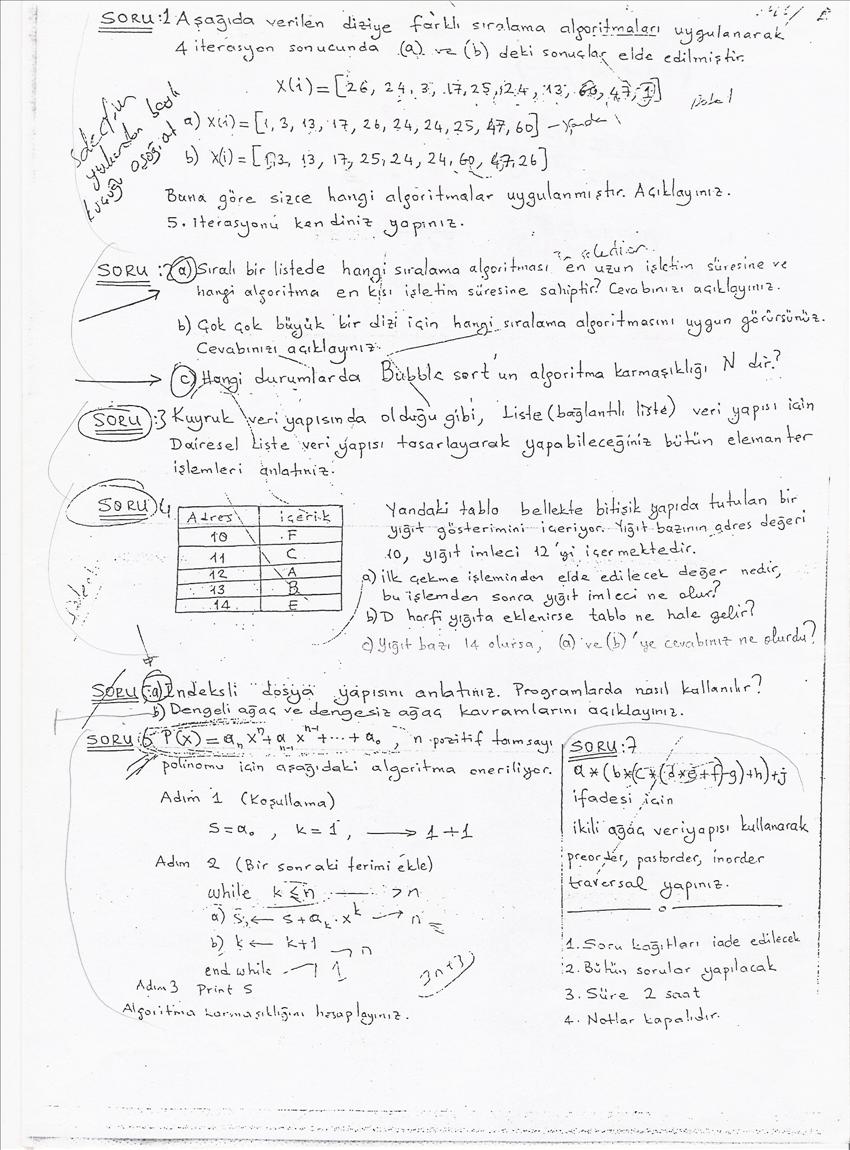 SORU:1 Aşağıda verilen diziye farklı sıralama algoritmaları uygulanarak
4 iterasyon sonucunda (a) ve (b) deki sonuçlar elde edilmiştir.
X(i)=[26, 24, 3, 17, 25, 24, 13, 60, 47, 1]
a) X(i)=[1, 3, 13, 17, 26, 24, 24, 25, 47, 60]
b) X(i)=[1,3, 13, 17, 25, 24, 24, 60, 47, 26]
Buna göre sizce hangi algoritmalar uygulanmıştır. Açıklayınız.
5. iterasyonu kendiniz yapınız.
Selection
yukarıdan
küçüğü aşağı at
selection
SORU:2 a) Sıralı bir listede hangi sıralama algoritması en uzun işletim süresine ve
hangi algoritma en kısı işletim süresine sahiptir? Cevabınızı açıklayınız.
b) Çok çok büyük bir dizi için hangi sıralama algoritmasını uygun görürsünüz.
Cevabınızı açıklayınız.
c) Hangi durumlarda Bubble sort'un algoritma karmaşıklığı N dir?
SORU:3 Kuyruk veri yapısında olduğu gibi, Liste (bağlantılı liste) veri yapısı için
Dairesel Liste veri yapısı tasarlayarak yapabileceğiniz bütün elemanter
işlemleri anlatınız.
SORU 4
Adres içerik
10 F
11 C
12 A
13 B
14 E
Yandaki tablo bellekte bitişik yapıda tutulan bir
yığıt gösterimini içeriyor. Yığıt bazının adres değeri
10, yığıt imleci 12'yi içermektedir.
a) ilk çekme işleminden elde edilecek değer nedir,
bu işlemden sonra yığıt imleci ne olur?
b) D harfi yığıta eklenirse tablo ne hale gelir?
c) Yığıt bazı 14 olursa, (a) ve (b)'ye cevabınız ne olurdu?
SORU :a) İndeksli dosya yapısını anlatınız. Programlarda nasıl kullanılır?
b) Dengeli ağaç ve dengesiz ağaç kavramlarını açıklayınız.
SORU:6 P(x) = aₙxⁿ + aₙ₋₁xⁿ⁻¹ + ... + a₀, n pozitif tamsayı
polinomu için aşağıdaki algoritma öneriliyor.
Adım 1 (Koşullama)
S=a₀, k=1, → 1+1
Adım 2 (Bir sonraki terimi ekle)
while k≤n → n
a) S ← S+aₖ.xᵏ → n
b) k ← k+1 → n
end while → 1
3n+3
Adım 3 Print S
Algoritma karmaşıklığını hesaplayınız.
SORU:7
a*(b*(c*(d*e+f)-g)+h)+j
ifadesi için
ikili ağaç veriyapısı kullanarak
preorder, pastorder, inorder
traversal yapınız.
1. Soru kağıtları iade edilecek
2. Bütün sorular yapılacak
3. Süre 2 saat
4. Notlar kapalıdır.